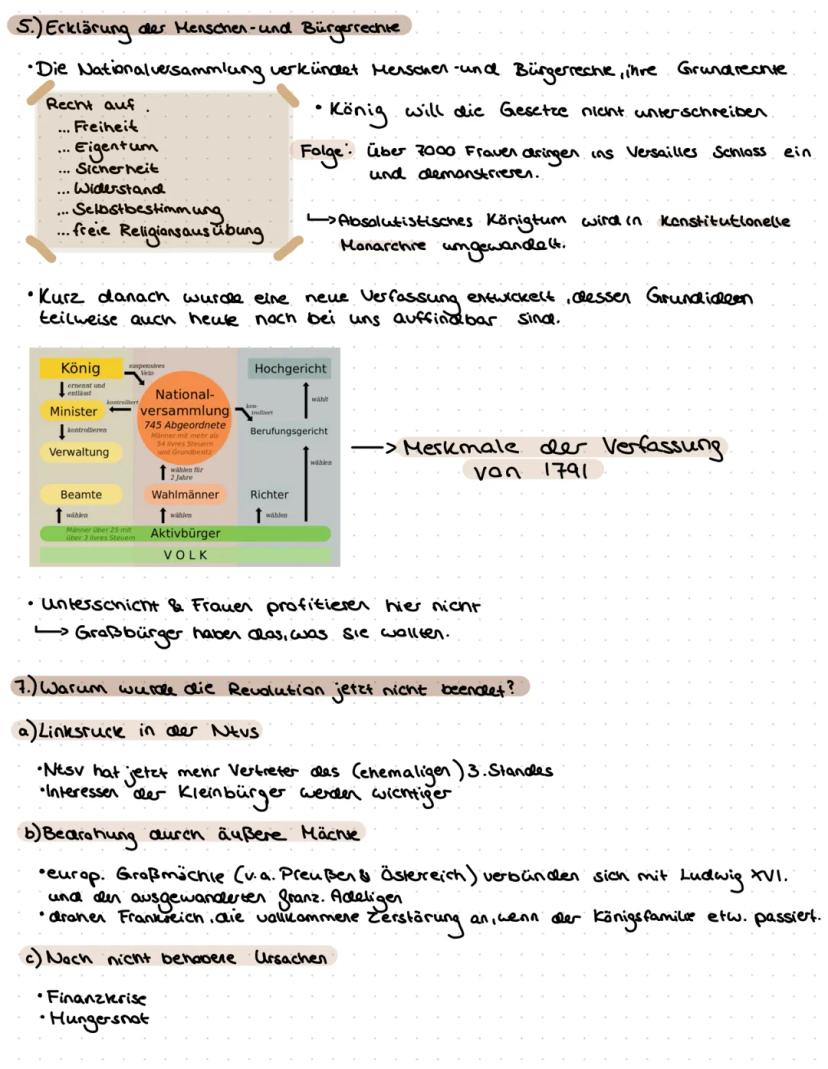 5.) Erklärung der Menschen- und Bürgerrechte
• Die Nationalversammlung verkündet Menschen- und Bürgerrechte, ihre Grundrechte
Recht auf
... Freiheit
... Eigentum
... Sicherheit
... Widerstand
... Selbstbestimmung
... freie Religionsausübung
• König will die Gesetze nicht unterschreiben
Folge: über 7000 Frauen dringen ins Versailles Schloss ein
und demonstrieren.
↳ Absolutistisches Königtum wird in Konstitutionelle
Monarchie umgewandelt.
• Kurz danach wurde eine neue Verfassung entwickelt, dessen Grundideen
teilweise auch heute noch bei uns auffindbar sind.
König
suspensives
Veto
Hochgericht
ernennt und
entlässt
wählt
Minister
kontrolliert
National-
versammlung
745 Abgeordnete
Männer mit mehr als
54 livres Steuern
und Grundbesitz
kon-
trolliert
Berufungsgericht
kontrollieren
Verwaltung
wählen für
2 Jahre
wählen
Beamte
Wahlmänner
Richter
wählen
wählen
wählen
Männer über 25 mit
über 3 livres Steuern
Aktivbürger
VOLK
→ Merkmale der Verfassung
von 1791
• Unterschicht & Frauen profitieren hier nicht
↳ Großbürger haben das, was sie wollten.
7.) Warum wurde die Revolution jetzt nicht beendet?
a) Linksruck in der Ntvs
• Ntsv hat jetzt mehr Vertreter des (ehemaligen) 3. Standes
• Interessen der Kleinbürger werden wichtiger
b) Bedrohung durch äußere Mächte
• europ. Großmächte (v.a. Preußen & Österreich) verbünden sich mit Ludwig XVI.
und den ausgewanderten franz. Adeligen
• drohen Frankreich, die vollkommene Zerstörung an, wenn der Königsfamilie etw. passiert.
c) Noch nicht behobene Ursachen
• Finanzkrise
• Hungersnot